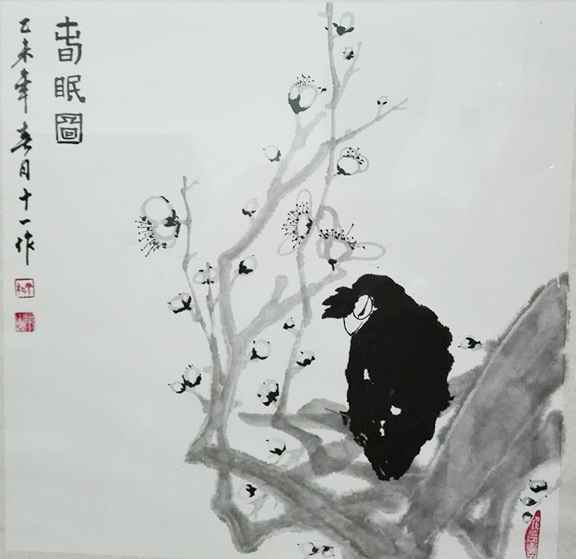 春眠图
乙未年春月十一作